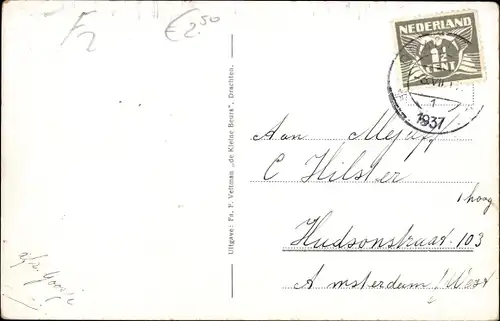 F2
€ 2.50
NEDERLAND
1½
CENT
1
1937
Uitgave: Fa. F. Veltman „de Kleine Beurs", Drachten.
Aan Mejuff
C Hilster
1 hoog
Hudsonstraat 103
Amsterdam West
afz.